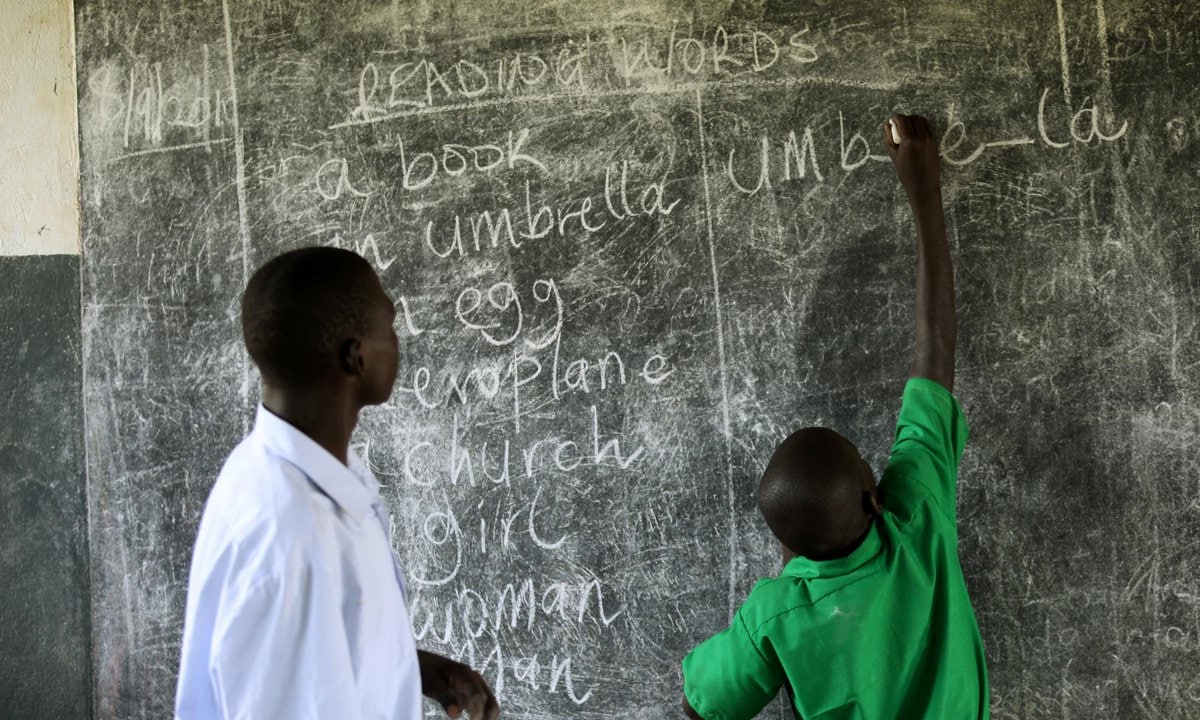 8/9/2011
READING WORDS
a book
an umbrella
egg
aeroplane
a church
girl
woman
man
umb_e_la